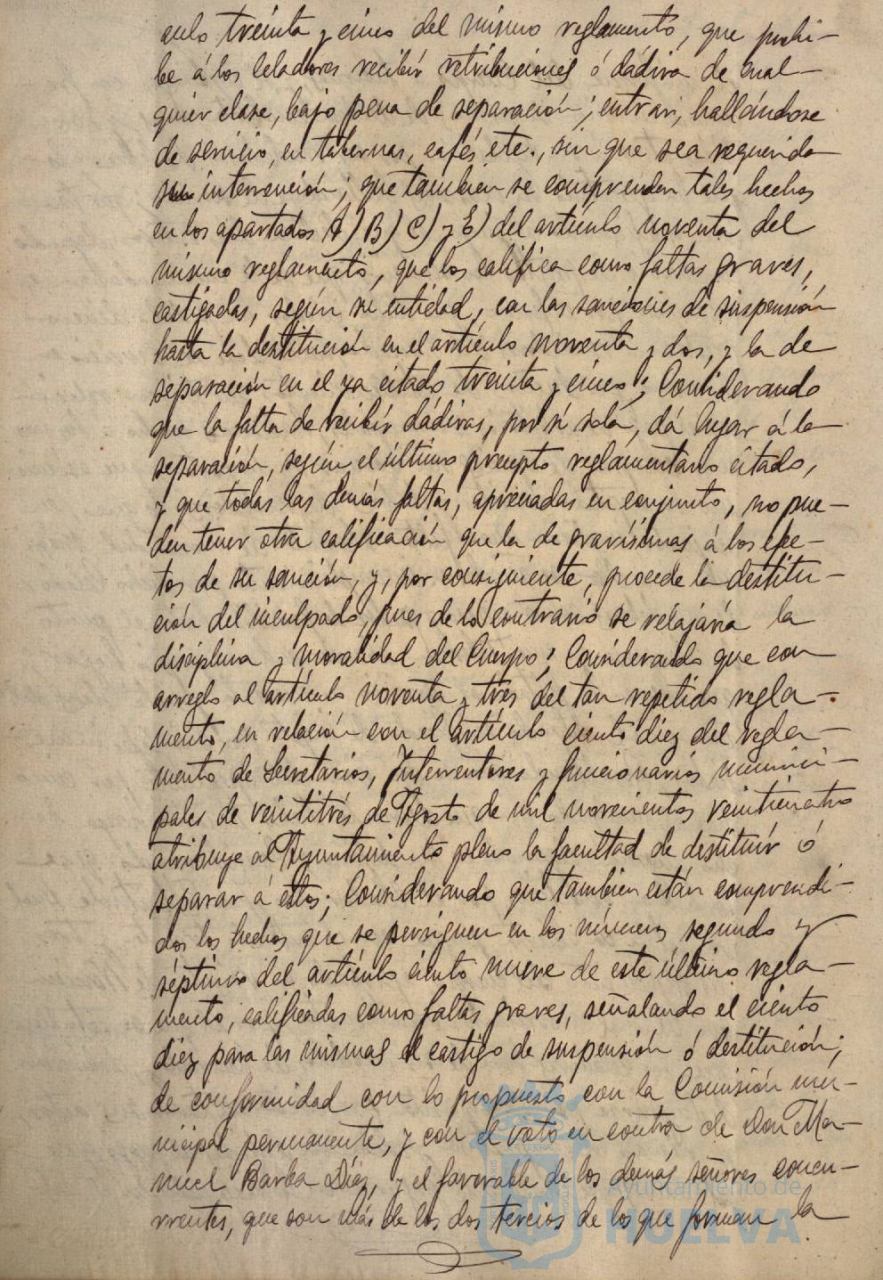 culo treinta y cinco del mismo reglamento, que prohi-
be á los Celadores recibir retribuciones ó dádiva de cual-
quier clase, bajo pena de separación; entrar, hallándose
de servicio, en tabernas, cafés, etc., sin que sea requerida
su intervención; que tambien se comprenden tales hechos
en los apartados A) B) C) y E) del artículo noventa del
mismo reglamento, que los califica como faltas graves,
castigadas, según su entidad, con las sanciones de suspensión
hasta la destitución en el artículo noventa y dos, y la de
separación en el ya citado treinta y cinco; Considerando
que la falta de recibir dádivas, por sí sola, dá lugar á la
separación, según el último precepto reglamentario citado,
y que todas las demás faltas, apreciadas en conjunto, no pue-
den tener otra calificación que la de gravísimas á los efec-
tos de su sanción, y, por consiguiente, procede la destitu-
ción del inculpado, pues de lo contrario se relajaría la
disciplina y moralidad del Cuerpo; Considerando que con
arreglo al artículo noventa y tres del tan repetido regla-
mento, en relación con el artículo ciento diez del regla-
mento de Secretarios, Interventores y funcionarios munici-
pales de veintitrés de Agosto de mil novecientos veinticuatro
atribuye al Ayuntamiento pleno la facultad de destituír ó
separar á estos; Considerando que tambien están comprendi-
dos los hechos que se persiguen en los números segundo y
séptimo del artículo ciento nueve de este último regla-
mento, calificadas como faltas graves, señalando el ciento
diez para las mismas el castigo de suspensión ó destitución;
de conformidad con lo propuesto con la Comisión mu-
nicipal permanente, y con el voto en contra de Don Ma-
nuel Barba Díaz, y el favorable de los demás señores concu-
rrentes, que son más de los dos tercios de los que forman la
Ayuntamiento de
HUELVA